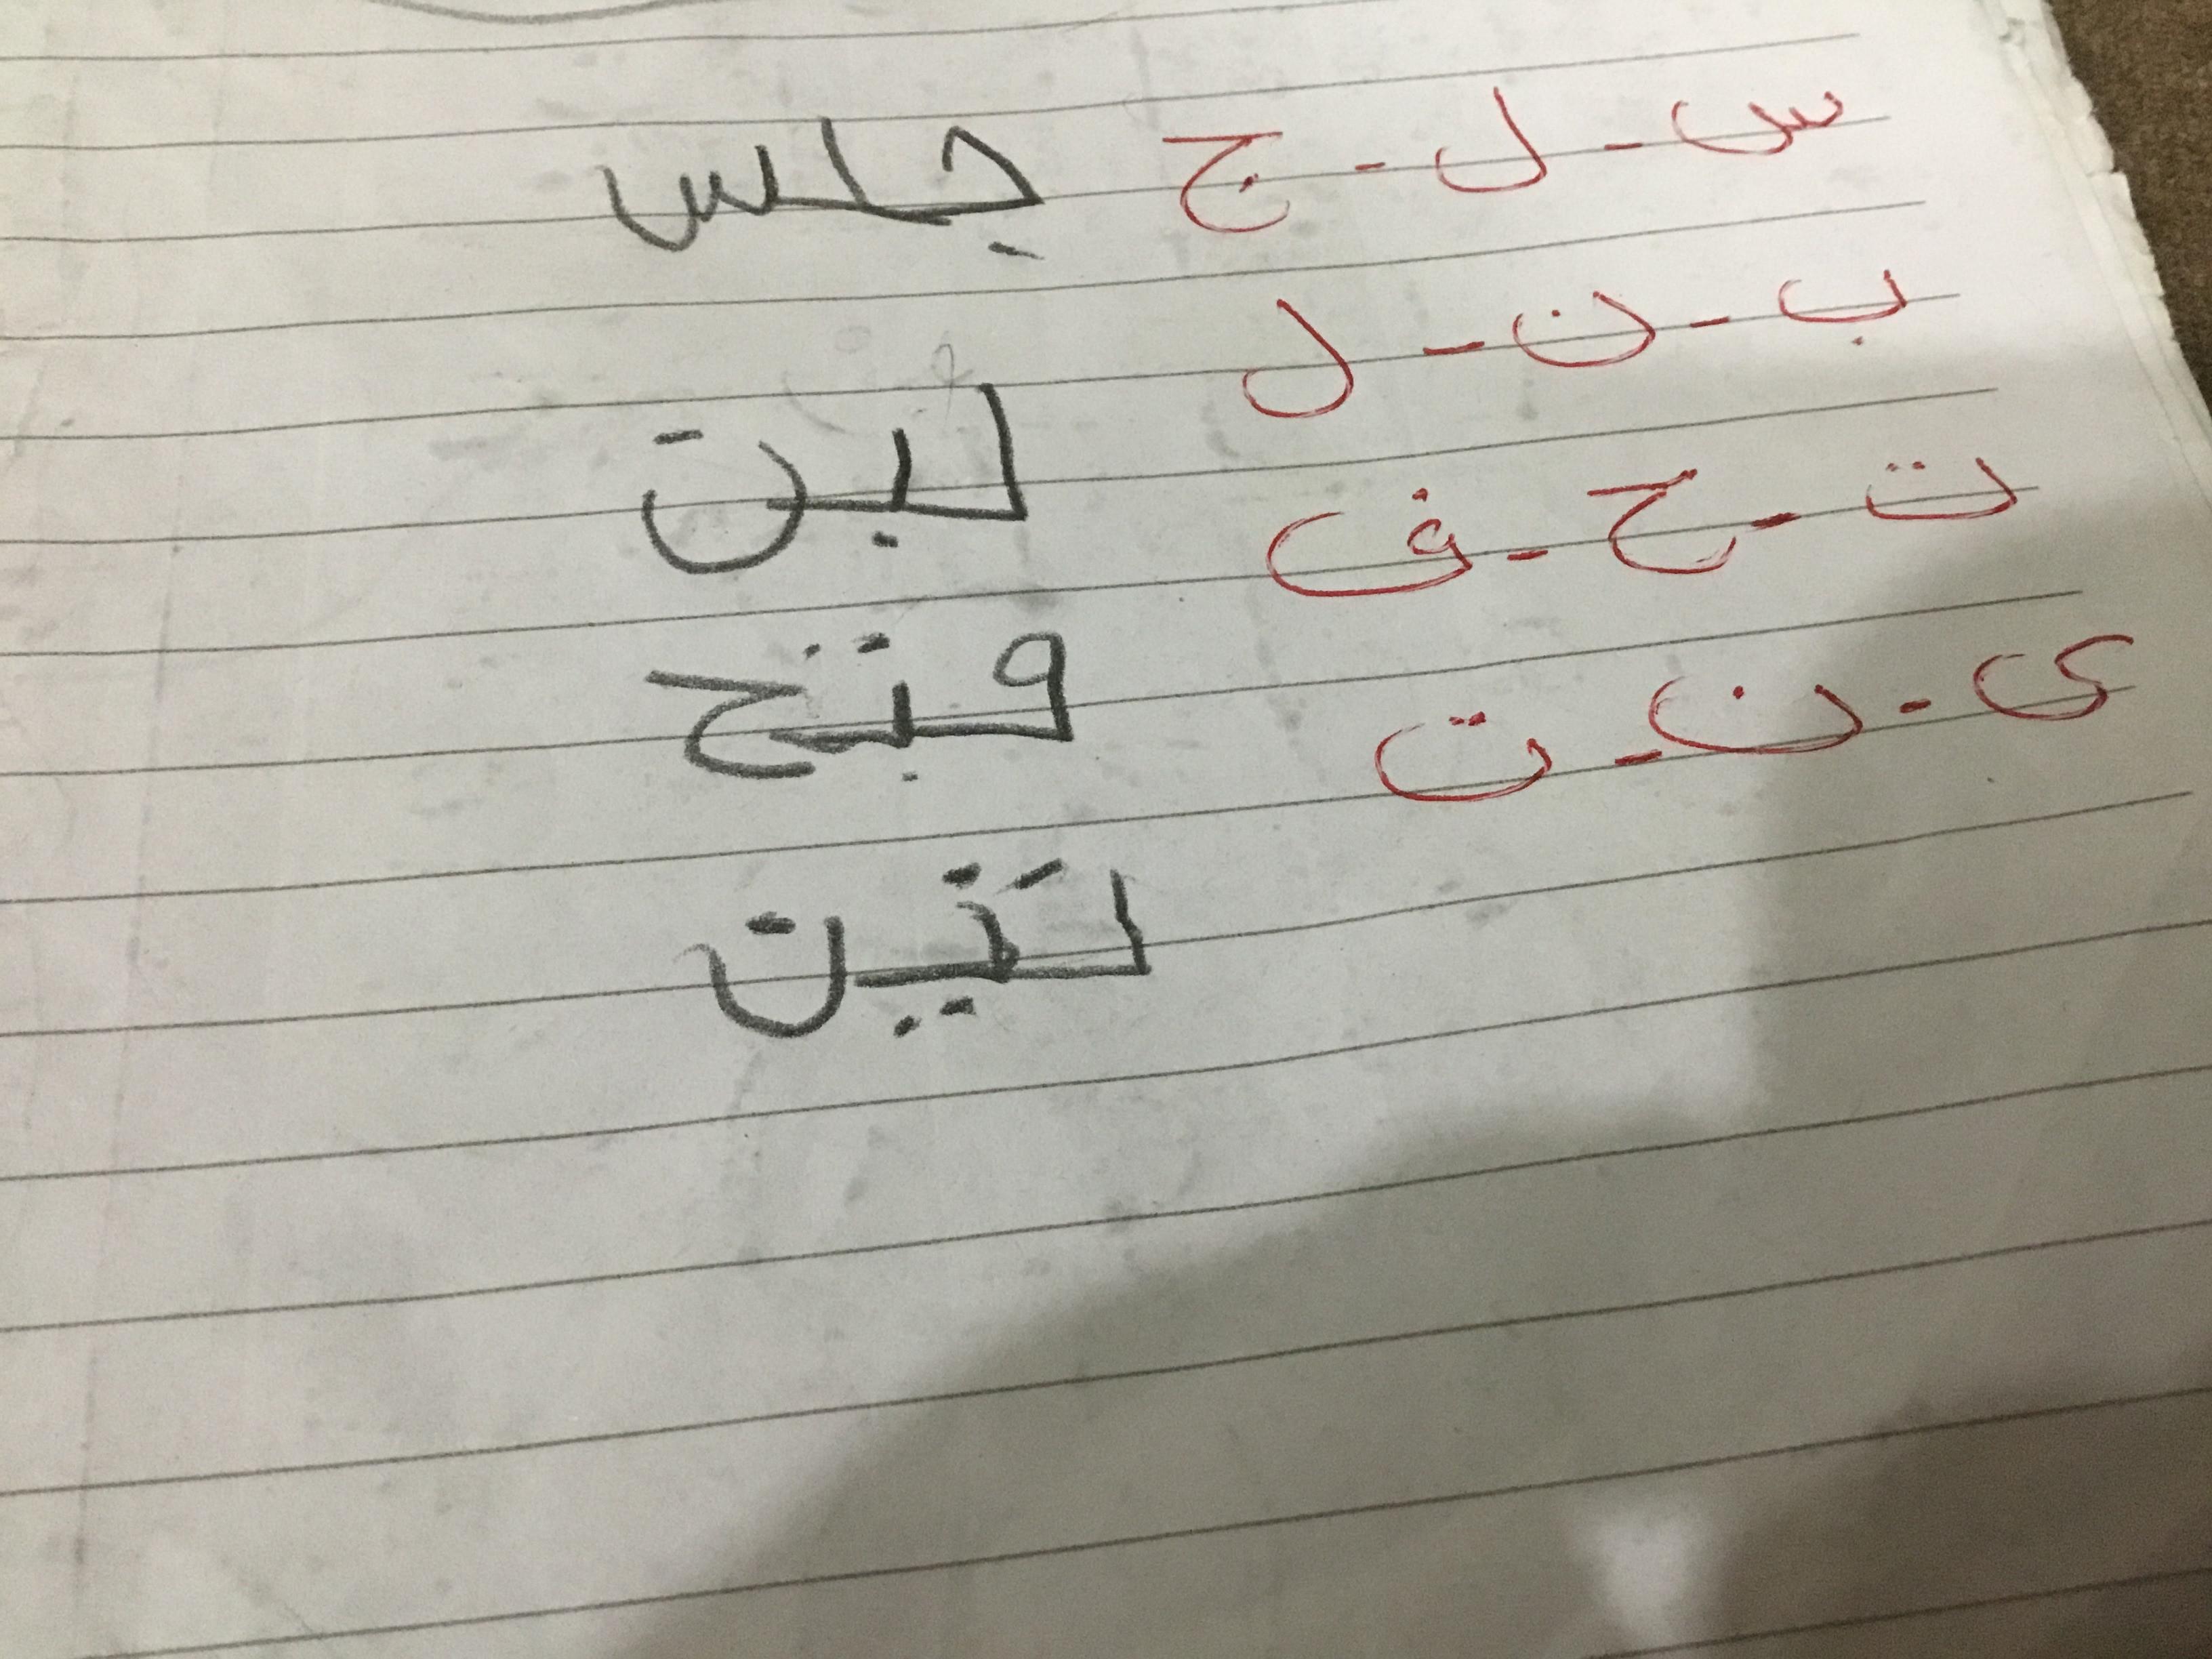 س - ل - ج جلس
ب - ن - ل لبن
ت - ح - ف فتح
ى - ن - ت لتين